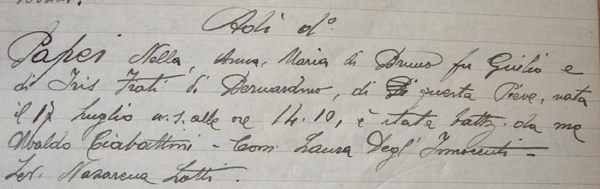 Adì d.º
Papei Nella, Anna, Maria di Bruno fu Giulio e
di Iris Frati di Bernardino, di questa Pieve, nata
il 17 luglio u.s. alle ore 14.10, è stata battz. da me
Ubaldo Ciabattini - Com. Laura Degl'Innocenti -
Lev. Nazarena Lotti.